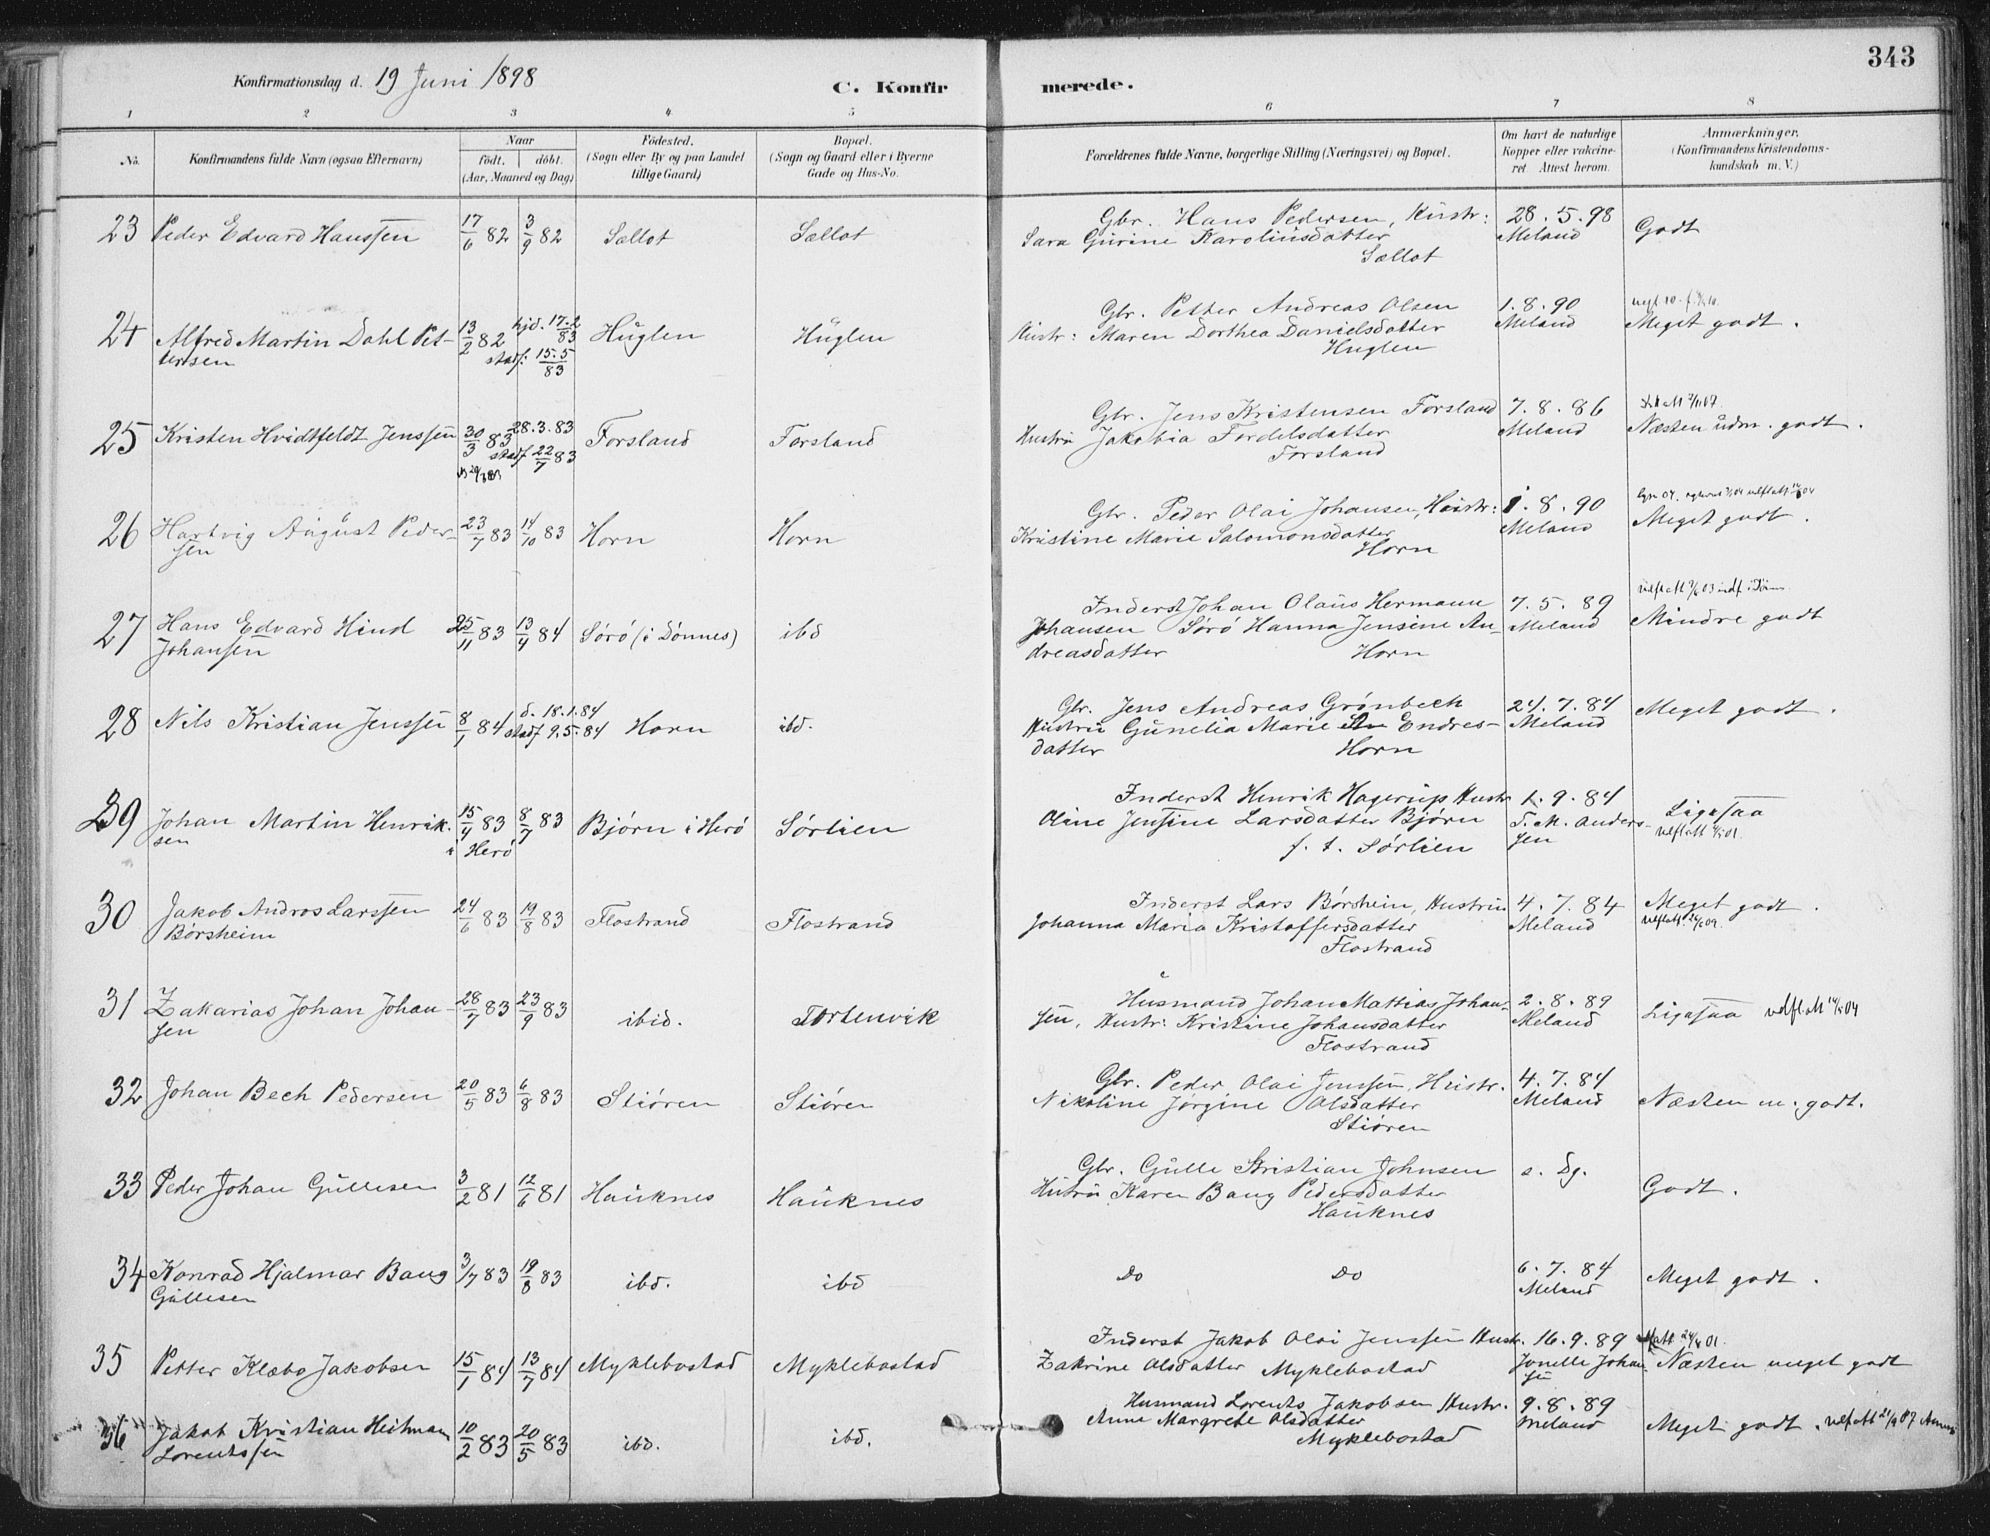 343
Konfirmationsdag d. 19 Juni 1898
C. Konfir merede.
1 2 3 4 5 6 7 8
No. Konfirmandens fulde Navn (ogsaa Efternavn)
Naar
født. døbt.
(Aar, Maaned og Dag)
Födested.
(Sogn eller By og paa Landet
tillige Gaard)
Bopæl.
(Sogn og Gaard eller i Byerne
Gade og Hus-No.
Forældrenes fulde Navne, borgerlige Stilling (Næringsvei) og Bopæl.
Om havt de naturlige
Kopper eller vakcine-
ret Attest herom.
Anmærkninger.
(Konfirmandens Kristendoms-
kundskab m. V.)
23 Peder Edvard Hanssen 17/6 82 3/9 82 Sællot Sællot
Gbr. Hans Pedersen, Hustr:
Sara Gurine Karoliusdatter
Sællot
28.5.98
Meland
Godt
24 Alfred Martin Dahl Pet-
tersen
13/2 82 hjd. 17.2/83
stadf: 15.5/83
Huglen Huglen
Gbr. Petter Andreas Olsen
Hustr: Maren Dorthea Danielsdatter
Huglen
1.8.90
Meland
Meget godt.
25 Kristen Hvidtfeldt Jenssen 30/3 83 28.3.83
stadf 22/7 83
Forsland Forsland
Gbr. Jens Kristensen Forsland
Hustru Jakobia Fordelsdatter
Forsland
7.8.86
Meland
Næsten udm. godt.
26 Hartvig August Peder-
sen
23/7 83 14/10 83 Horn Horn
Gbr. Peder Olai Johansen, Hustr:
Kristine Marie Salomonsdatter
Horn
1.8.90
Meland
Meget godt.
27 Hans Edvard Hind
Johansen
25/11 83 13/4 84 Sørø (i Dønnes) ibd
Inderst Johan Olaus Hermann
Johansen Sørø Hanna Jensine An-
dreasdatter Horn
7.5.89
Meland
Mindre godt
28 Nils Kristian Jenssen 8/1 84 d. 18.1.84
stadf 9.5.84
Horn ibd.
Gbr. Jens Andreas Grønbech
Hustru Gunelia Marie Endres-
datter Horn
24.7.84
Meland
Meget godt.
29 Johan Martin Henrik-
sen
15/4 83 8/7 83
i Herø
Bjørn i Herø Sørlien
Inderst Henrik Hagerup Hustr
Oline Jensine Larsdatter Bjørn
f. t. Sørlien
1.9.84
T. M. Anders-
sen
Ligesaa
30 Jakob Andros Larssen
Børsheim
24/6 83 19/8 83 Flostrand Flostrand
Inderst Lars Børsheim, Hustru
Johanna Maria Kristoffersdatter
Flostrand
4.7.84
Meland
Meget godt.
31 Zakarias Johan Johan-
sen
28/7 83 23/9 83 ibid. Tortenvik
Husmand Johan Mattias Johan-
sen, Hustr: Kristine Johansdatter
Flostrand
2.8.89
Meland
Ligesaa
32 Johan Bech Pedersen 20/5 83 6/8 83 Stiøren Stiøren
Gbr. Peder Olai Jenssen, Hustr.
Nikoline Jørgine Olsdatter
Stiøren
4.7.84
Meland
Næsten m. godt.
33 Peder Johan Gullesen 3/2 81 12/6 81 Hauknes Hauknes
Gbr. Gulle Kristian Johnsen
Hutru Karen Baug Pedersdatter
Hauknes
s. Dg.
Godt.
34 Konrad Hjalmar Baug
Gullesen
3/7 83 19/8 83 ibd. ibd
Do Do
6.7.84
Meland
Meget godt.
35 Petter Klæbo Jakobsen 15/1 84 13/7 84 Myklebostad Myklebostad
Inderst Jakob Olai Jenssen Hustr.
Zakrine Olsdatter Myklebostad
16.9.89
Jonelle Johan-
sen
Næsten meget godt
36 Jakob Kristian Heitman
Lorentssen
10/2 83 20/5 83 ibd. ibd.
Husmand Lorents Jakobsen Hustr.
Anne Margrete Olsdatter
Myklebostad
9.8.89
Meland
Meget godt.